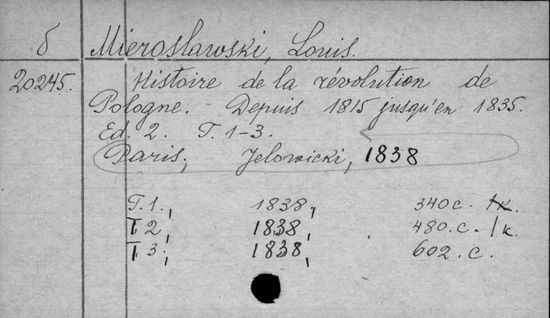 б Mierosławski, Louis.
20245. Histoire de la révolution de
Pologne. Depuis 1815 jusqu'en 1835.
Ed. 2. T. 1-3.
Paris, Jelowicki, 1838
T. 1, 1838, 340 c. 1к.
T 2, 1838, 480. c. 1к.
T 3, 1838, 602. c.